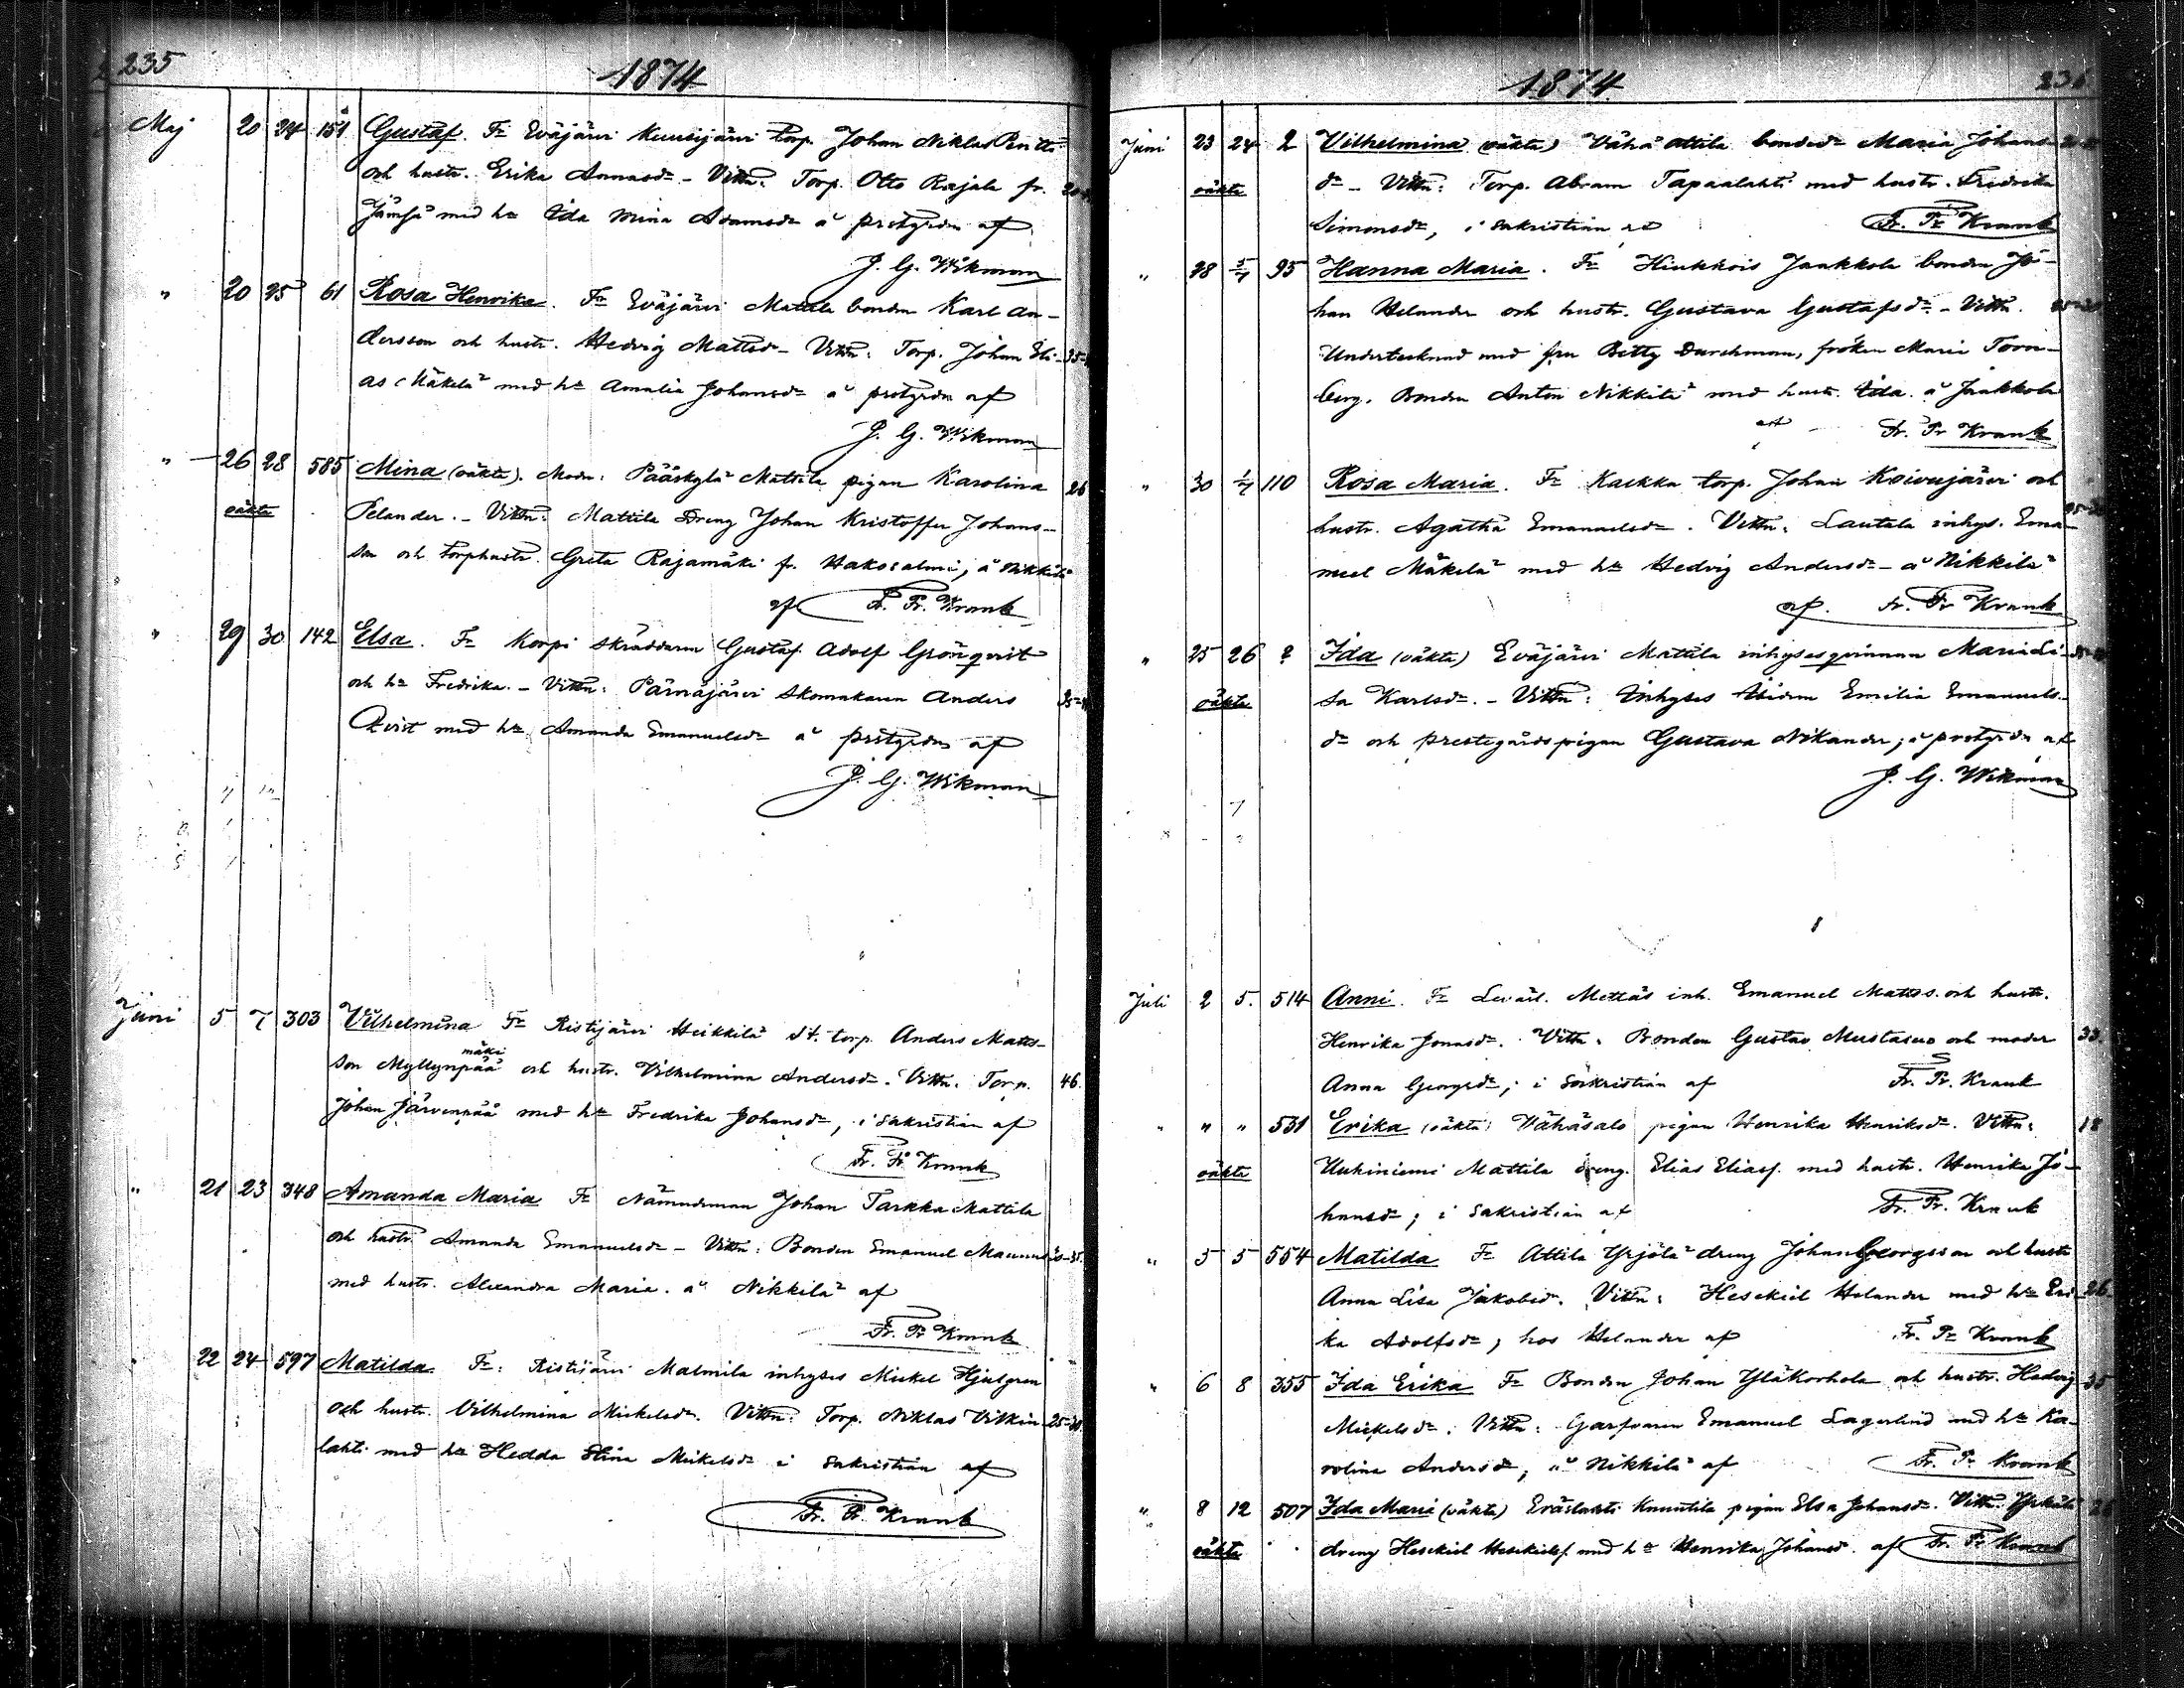 235
1874
Maj 20 24 151 Gustaf. Fr Eväjärvi Kuusijärvi torp. Johan Niklas Pentti
och hustr. Erika Annasdr - Vittn: Torp. Otto Rajala fr.
Jämsä med hu Ida Mina Adamsdr å prestgrdn af
J. G. Wikman
" 20 25 61 Rosa Henrika. Fr Eväjärvi Mattila bonden Karl An-
dersson och hustr. Hedvig Mattsdr - Vittn: Torp. Johan Eli-
as Mäkelä med hu Amalia Johansdr å prstgrdn af
J. G. Wikman
" 26 28 585 Mina (oäkta). Modr: Pääskylä Mattila pigan Karolina 26
oäkta Pelander. - Vittn: Mattila Dreng Johan Kristoffer Johans-
son och torphustr. Greta Rajamäki fr. Hakosalmi, å Nikkilä
af Fr. Fr. Krank
" 29 30 142 Elsa. Fr Korpi skräddaren Gustaf Adolf Grönqvist
och hu Fredrika. - Vittn: Pärnäjärvi Skomakaren Anders
Qvist med hu Amanda Emanuelsdr å prstgrdn af
J. G. Wikman
Juni 5 7 303 Vilhelmina Fr Ristijärvi Heikkilä st. torp. Anders Matts-
mäki
son Myllynpää och hustr. Vilhelmina Andersdr. Vittn. Torp. 46.
Johan Järvenpää med hu Fredrika Johansdr, i sakristian af
Fr. Fr. Krank
" 21 23 348 Amanda Maria Fr Nämndeman Johan Tarkka Mattila
och hustr Amanda Emanuelsdr - Vittn: Bonden Emanuel Maunus
med hustr. Alexandra Maria. å Nikkilä af
Fr. Fr Krank
22 24 597 Matilda Fr: Ristijärvi Malmila inhyses Mickel Hjulgren
och hustr. Vilhelmina Mickelsdr. Vittn: Torp. Niklas Vitkin-
lahti med hu Hedda Stina Mickelsdr i sakristian af
Fr. Fr. Krank
1874
236
Juni 23 24 2 Vilhelmina (oäkta) Vähä Attila bondedr Maria Johans-
oäkta dr - Vittn: Torp. Abram Tapaalahti med hustr. Fredrika
Simonsdr, i sakristian af Fr. Fr Krank
" 28 5/7 95 Hanna Maria. Fr Hinkkois Jaakkola bonden Jo-
han Helander och hustr. Gustava Gustafsdr. - Vittn.
Undertecknad med fru Betty Durchman, fröken Marie Torn-
berg. Bonden Anton Nikkilä med hustr. Ida. å Jaakkola
af Fr. Fr Krank
" 30 1/7 110 Rosa Maria. Fr Kaekka torp. Johan Koivujärvi och
hustr. Agatha Emanuelsdr. Vittn: Lautala inhys. Ema-
nuel Mäkelä med hu Hedvig Andersdr - å Nikkilä
af. Fr. Fr Krank
" 25 26 ? Ida (oäkta) Eväjärvi Mattila inhysesqvinnan Maria Li-
oäkta sa Karlsdr. - Vittn: Inhyses Emilia Emanuels-
dr och prestegårdspigan Gustava Nikander; å prstgrdn af
J. G. Wikman
Juli 2 5. 514 Anni. Fr Mettäs inh. Emanuel Mattss. och hustr.
Henrika Jonasdr. Vittn: Bonden Gustav Mustasuo och moder 33.
Anna Georgsdr; i Sakristian af Fr. Fr. Krank
" " " 531 Erika (oäkta) Vähäsalo pigan Henrika Henriksdr. Vittn: 18
oäkta Uuhiniemi Mattila dreng. Elias Eliasf. med hustr. Henrika Jo-
hansdr; i Sakristian af Fr. Fr. Krank
" 5 5 554 Matilda Fr Attila Yrjölä dreng Johan Georgsson och hustr
Anna Lisa Jakobsdr. Vittn: Hesekiel Helander med hu Eri- 26
ka Adolfsdr; hos Helander af Fr. Fr Krank
" 6 8 355 Ida Erika Fr Bonden Johan Ylä Korhola och hustr. Hedvig 35
Mickelsdr. Vittn: Garfvaren Emanuel Lagerlind med hu Ka-
rolina Andersdr; å Nikkilä af Fr. Fr Krank
" 8 12 507 Ida Maria (oäkta) Eväslahti Knuutila pigan Elsa Johansdr. Vittn.
oäkta dreng Hesekiel Hesekielsf. med hu Henrika Johansdr. af Fr. Fr Krank